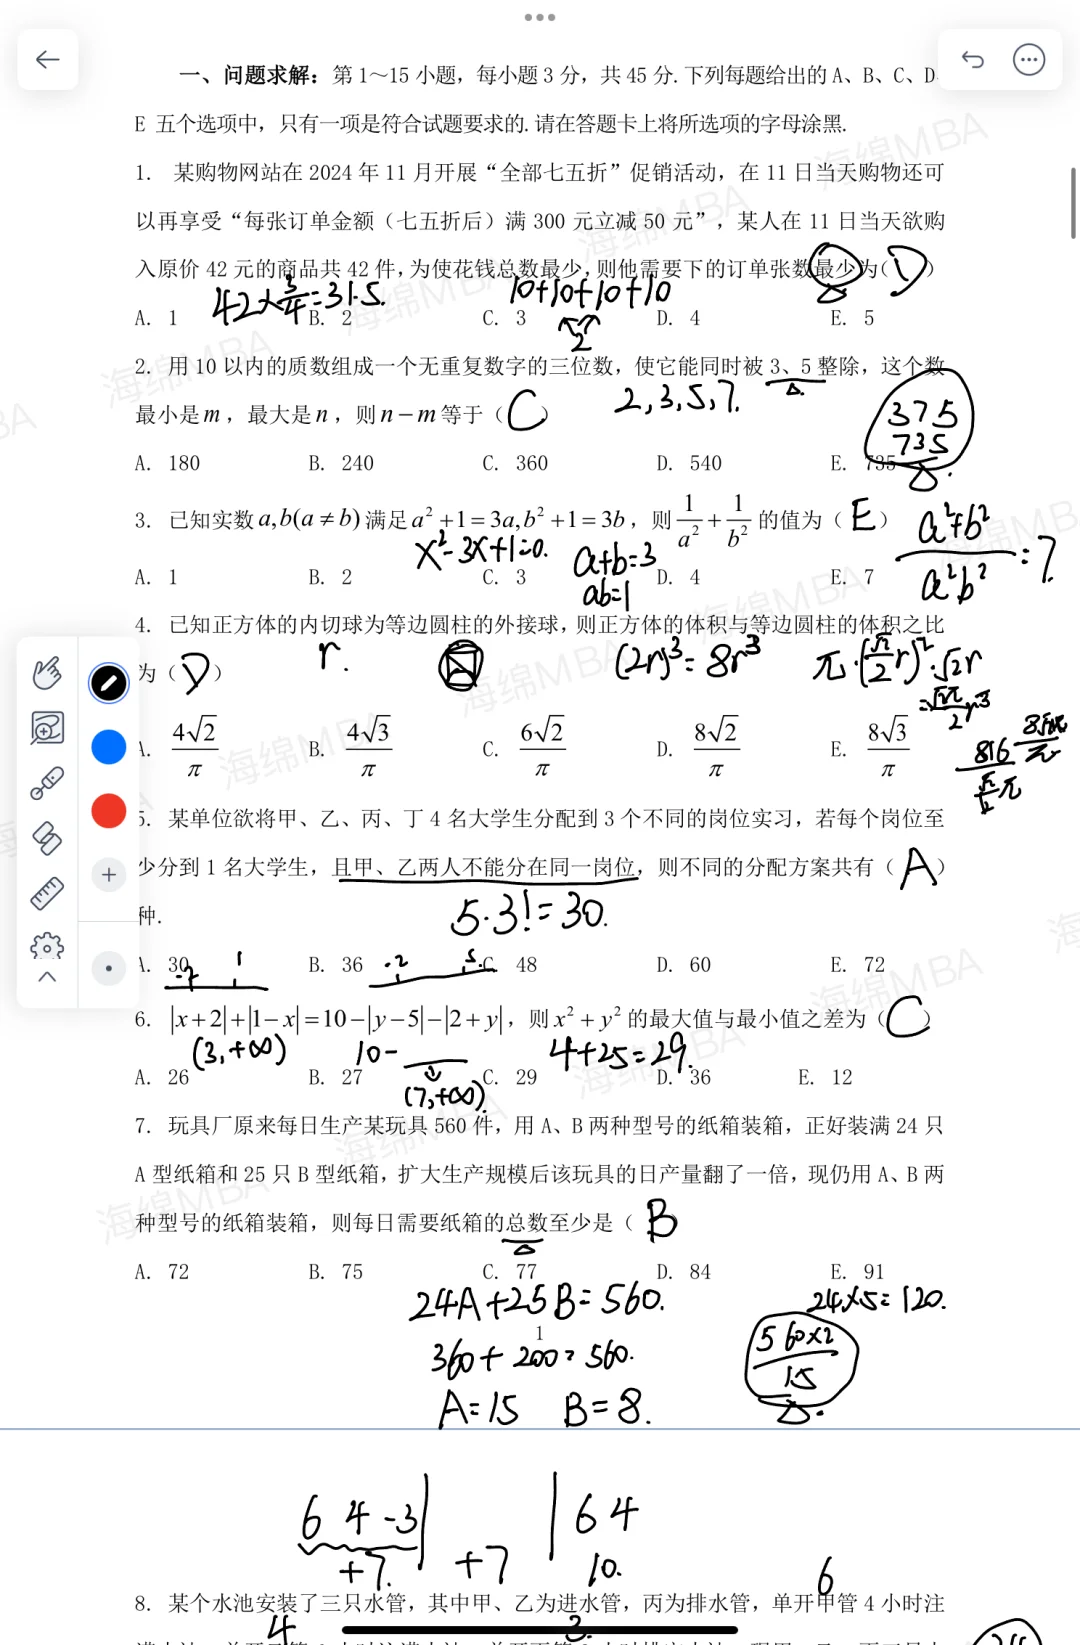 一、问题求解：第 1～15 小题，每小题 3 分，共 45 分.下列每题给出的 A、B、C、D、
E 五个选项中，只有一项是符合试题要求的.请在答题卡上将所选项的字母涂黑.
1. 某购物网站在 2024 年 11 月开展“全部七五折”促销活动，在 11 日当天购物还可
以再享受“每张订单金额（七五折后）满 300 元立减 50 元”，某人在 11 日当天欲购
入原价 42 元的商品共 42 件，为使花钱总数最少，则他需要下的订单张数最少为（D）
42×3/4=31.5. 10+10+10+10
2
A. 1 B. 2 C. 3 D. 4 E. 5
2. 用 10 以内的质数组成一个无重复数字的三位数，使它能同时被 3、5 整除，这个数
最小是 m，最大是 n，则 n－m 等于（C） 2,3,5,7. 375
735
A. 180 B. 240 C. 360 D. 540 E. 735
3. 已知实数 a,b(a≠b) 满足 a²+1=3a,b²+1=3b，则 1/a²+1/b² 的值为（E） a²+b²/a²b²=7
x²-3x+1=0. a+b=3
ab=1
A. 1 B. 2 C. 3 D. 4 E. 7
4. 已知正方体的内切球为等边圆柱的外接球，则正方体的体积与等边圆柱的体积之比
为（D） r. (2r)³=8r³ π·(√2/2 r)²·√2r
=√2π/2 r³
A. 4√2/π B. 4√3/π C. 6√2/π D. 8√2/π E. 8√3/π
5. 某单位欲将甲、乙、丙、丁 4 名大学生分配到 3 个不同的岗位实习，若每个岗位至
少分到 1 名大学生，且甲、乙两人不能分在同一岗位，则不同的分配方案共有（A）
种. 5·3!=30.
A. 30 B. 36 C. 48 D. 60 E. 72
-2 1 -2 5
6. |x+2|+|1-x|=10-|y-5|-|2+y|，则 x²+y² 的最大值与最小值之差为（C）
(3,+∞) 10- 4+25=29.
A. 26 B. 27 C. 29 D. 36 E. 12
(7,+∞)
7. 玩具厂原来每日生产某玩具 560 件，用 A、B 两种型号的纸箱装箱，正好装满 24 只
A 型纸箱和 25 只 B 型纸箱，扩大生产规模后该玩具的日产量翻了一倍，现仍用 A、B 两
种型号的纸箱装箱，则每日需要纸箱的总数至少是（B
A. 72 B. 75 C. 77 D. 84 E. 91
24A+25B=560. 24×5=120.
1
360+200=560. 560×2/15
A=15 B=8.
64-3 64
+7. +7 10.
6
8. 某个水池安装了三只水管，其中甲、乙为进水管，丙为排水管，单开甲管 4 小时注
4 3.
海绵MBA